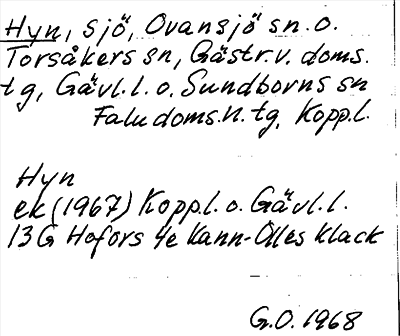 Hyn, sjö, Ovansjö sn. o.
Torsåkers sn, Gästr. v. doms.
tg, Gävl. l. o. Sundborns sn
Falu doms. n. tg, Kopp. l.
Hyn
ek (1967) Kopp. l. o. Gävl. l.
13G Hofors 4e Kann-Olles klack
G.O. 1968